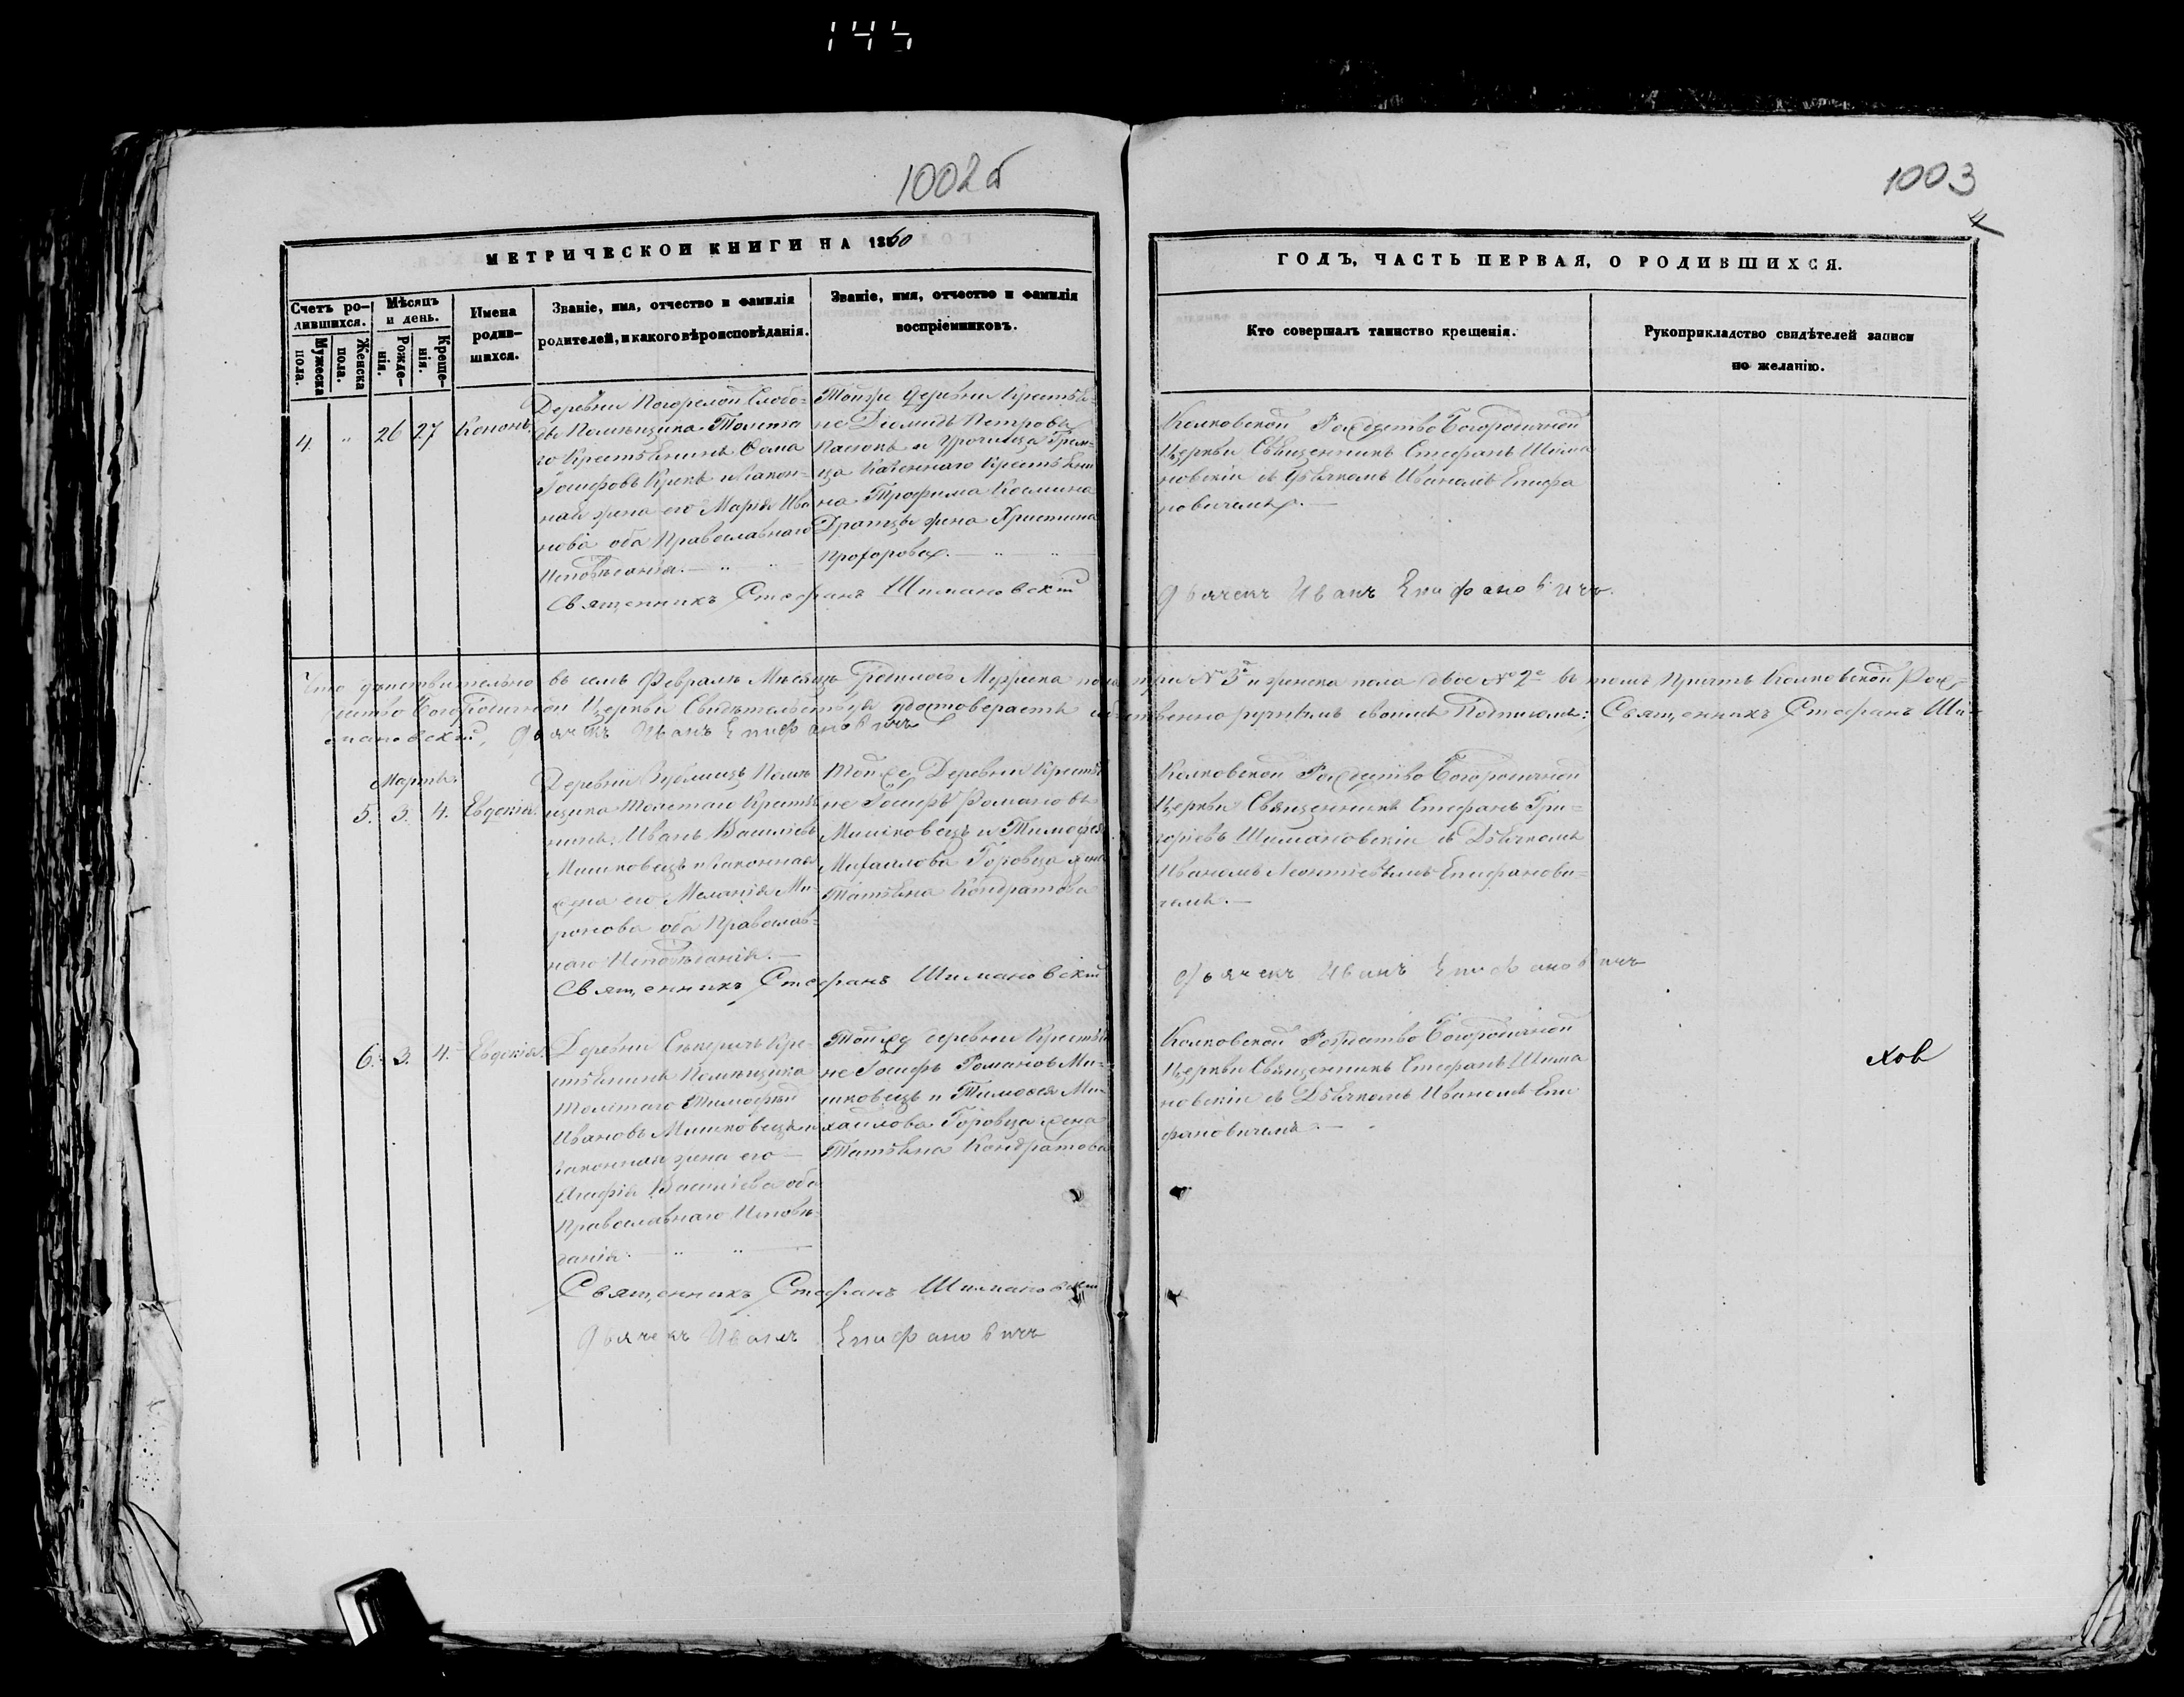 144
1002б
1003
4
МЕТРИЧЕСКОЙ КНИГИ НА 1860
ГОДЪ, ЧАСТЬ ПЕРВАЯ, О РОДИВШИХСЯ.
Счетъ ро-
дившихся.
Мужеска
пола.
Женска
пола.
Мѣсяцъ
и день.
Рожде-
нія.
Креще-
нія.
Имена
родив-
шихся.
Званіе, имя, отчество и фамилія
родителей, и какого вѣроисповѣданія.
Званіе, имя, отчество и фамилія
воспріемниковъ.
Кто совершалъ таинство крещенія.
Рукоприкладство свидѣтелей записи
по желанію.
4. " 26 27 Кононъ.
Деревни Погорелой Слобо-
ды Помѣщика Толста
го Крестьянинъ Фома
Іосифовъ и Закон-
ная жена его Марія Ива
нова оба Православнаго
Исповѣданія. — " "
Тойже Деревни Крестья-
не Діомидъ Петровъ
и Урочища
ца Казеннаго Крестьяни
на Трофима Космина
жена Христина
Прохорова. — " "
Священникъ Стефанъ Шимановскій
Колковской Рождество Богородичной
Церкви Священникъ Стефанъ Шима
новскій съ Дьячкомъ Иваномъ Епифа
новичемъ. —
Дьячекъ Иванъ Епифановичъ.
Что дѣйствительно въ семъ Февралѣ Мѣсяцѣ Родилось Мужеска пола три № 3й и женска пола двое № 2е въ томъ Причтъ Колковской Рож-
дество Богородичной Церкви Свидѣтельствуя удостоверяетъ собственноручнымъ своимъ Подписомъ: Священникъ Стефанъ Ши-
мановскій, Дьячекъ Иванъ Епифановичъ
Мартъ.
5. 3. 4. Евдокія.
Деревни Помѣ
щика Толстаго Крестья
нинъ Иванъ Василіевъ
Мишковецъ и Законная
жена его Меланія Ми-
ронова оба Православ-
наго Исповѣданія. —
Тойже Деревни Крестья
не Іосифъ Романовъ
Мишковецъ и Тимофея
Михаилова Горовца жена
Татьяна Кондратова
Священникъ Стефанъ Шимановскій
Колковской Рождество Богородичной
Церкви Священникъ Стефанъ Гри-
горіевъ Шимановскій съ Дьячкомъ
Иваномъ Леонтіевымъ Епифанови-
чемъ. —
Дьячекъ Иванъ Епифановичъ
6. 3. 4. Евдокія.
Деревни Кре-
стьянинъ Помѣщика
Толстаго Тимофей
Ивановъ Мишковецъ и
законная жена его —
Агафія Василіева оба
Православнаго Исповѣ-
данія. — " " —
Тойже деревни Крестья
не Іосифъ Романовъ Ми-
шковецъ и Тимофея Ми-
хайлова Горовца жена
Татьяна Кондратова
Священникъ Стефанъ Шимановскій
Дьячекъ Иванъ Епифановичъ
Колковской Рождество Богородичной
Церкви Священникъ Стефанъ Шима
новскій съ Дьячкомъ Иваномъ Епи
фановичемъ. —